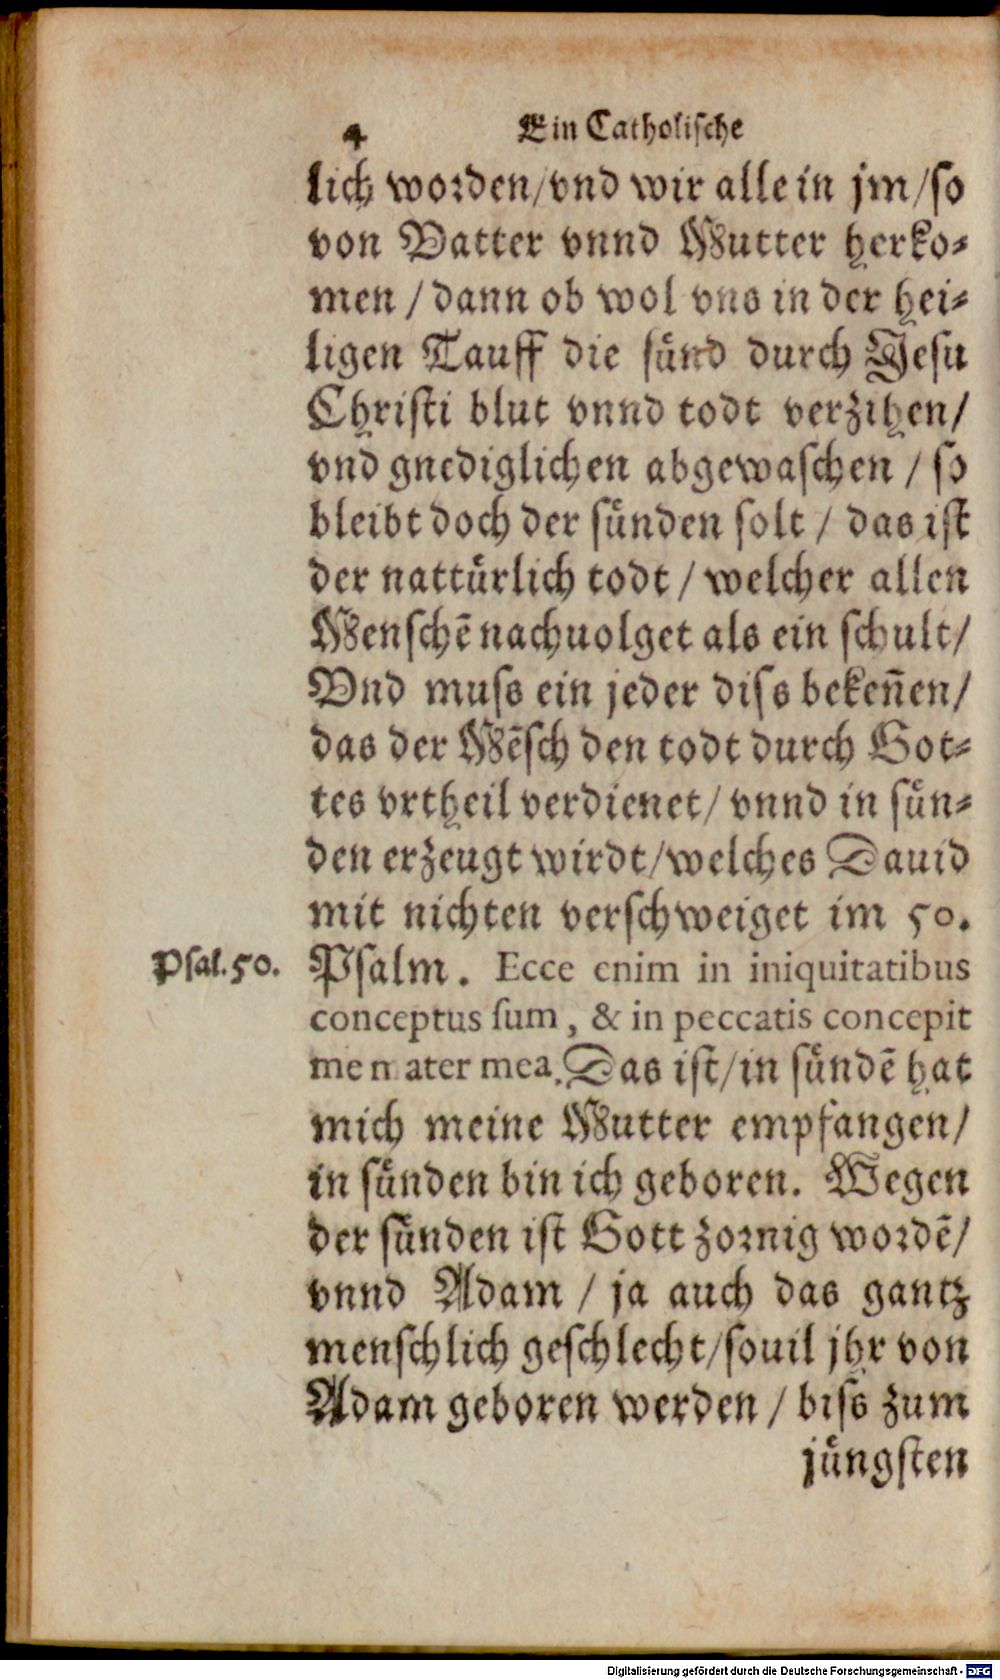 4 Ein Catholische
lich worden/vnd wir alle in jm/so
von Vatter vnnd Mutter herko-
men / dann ob wol vns in der hei-
ligen Tauff die sünd durch Jesu
Christi blut vnnd todt verzihen/
vnd gnediglichen abgewaschen / so
bleibt doch der sünden solt / das ist
der nattürlich todt / welcher allen
Menschē nachuolget als ein schult/
Vnd muss ein jeder diss bekeñen/
das der Mēsch den todt durch Got-
tes vrtheil verdienet/ vnnd in sün-
den erzeugt wirdt/welches Dauid
mit nichten verschweiget im 50.
Psal. 50. Psalm. Ecce enim in iniquitatibus
conceptus sum, & in peccatis concepit
me mater mea. Das ist/in sündē hat
mich meine Mutter empfangen/
in sünden bin ich geboren. Wegen
der sünden ist Gott zornig wordē/
vnnd Adam / ja auch das gantz
menschlich geschlecht/souil jhr von
Adam geboren werden / biss zum
jüngsten
Digitalisierung gefördert durch die Deutsche Forschungsgemeinschaft - DFG